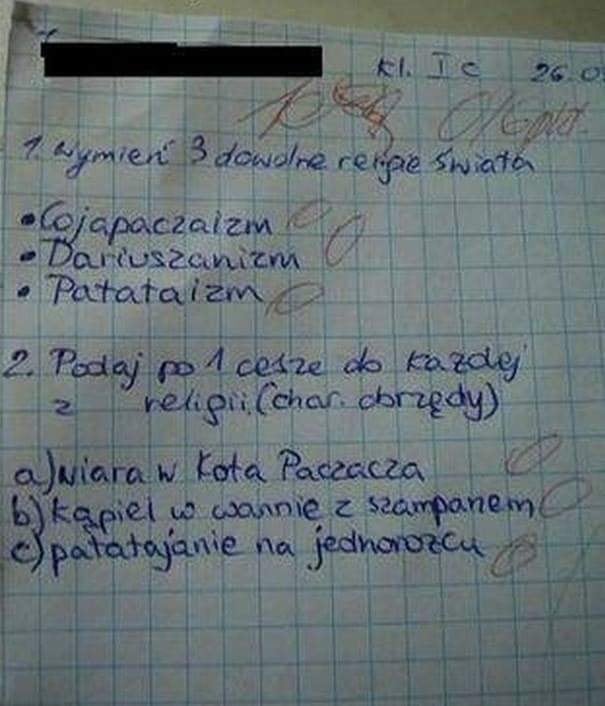 kl. I c 26.0
0/6 pkt.
1. Wymień 3 dowolne religie świata
• Cojapaczaizm 0
• Dariuszanizm 0
• Patataizm 0
2. Podaj po 1 cesze do każdej
z religii (char. obrzędy)
a) wiara w Kota Paczacza 0
b) kąpiel w wannie z szampanem 0
c) patatajanie na jednorożcu 0